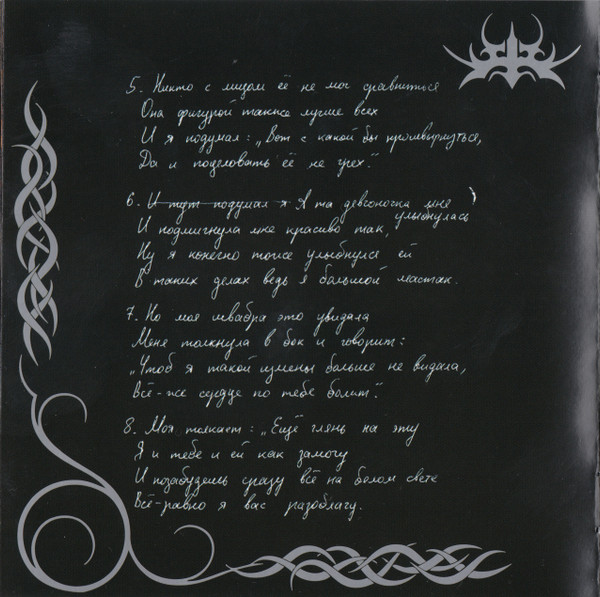 5. Никто с лицом её не мог сравниться
Она фигурой также лучше всех
И я подумал: „Вот с какой бы прошвырнуться,
Да и поцеловать её не грех."
6. И тут подумал я А та девчоночка мне улыбнулась
И подмигнула мне красиво так,
Ну я конечно тоже улыбнулся ей
В таких делах ведь я большой мастак.
7. Но моя швабра это увидала
Меня толкнула в бок и говорит:
„Чтоб я такой измены больше не видала,
Всё-же сердце по тебе болит".
8. Моя толкает: „Ещё глянь на эту
Я и тебе и ей как замогу
И позабудешь сразу всё на белом свете
Всё-равно я вас разоблачу.